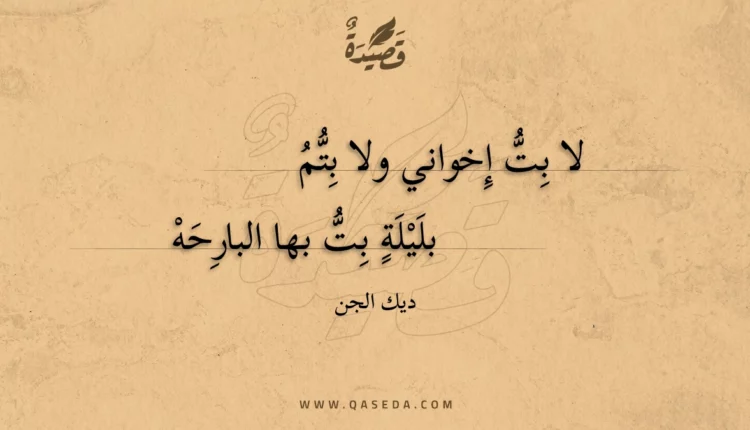 قَصِيدَةٌ
لا بِتُّ إِخواني ولا بِتُّمُ
بلَيْلَةٍ بِتُّ بها البارِحَهْ
ديك الجن
WWW.QASEDA.COM